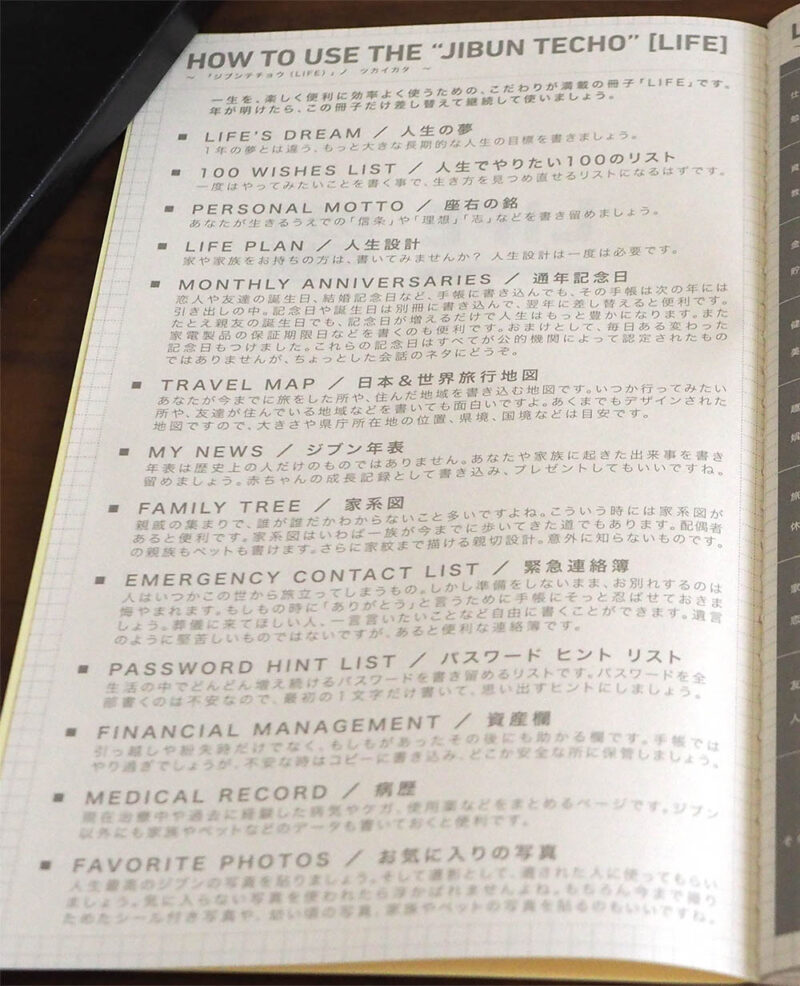 HOW TO USE THE "JIBUN TECHO" [LIFE]
～ 「ジブンテチョウ（LIFE）」ノ ツカイカタ ～
一生を、楽しく便利に効率よく使うための、こだわりが満載の冊子「LIFE」です。
年が明けたら、この冊子だけ差し替えて継続して使いましょう。
■ LIFE'S DREAM / 人生の夢
1年の夢とは違う、もっと大きな長期的な人生の目標を書きましょう。
■ 100 WISHES LIST / 人生でやりたい100のリスト
一度はやってみたいことを書く事で、生き方を見つめ直せるリストになるはずです。
■ PERSONAL MOTTO / 座右の銘
あなたが生きるうえでの「信条」や「理想」「志」などを書き留めましょう。
■ LIFE PLAN / 人生設計
家や家族をお持ちの方は、書いてみませんか？ 人生設計は一度は必要です。
■ MONTHLY ANNIVERSARIES / 通年記念日
恋人や友達の誕生日、結婚記念日など、手帳に書き込んでも、その手帳は次の年には
引き出しの中。記念日や誕生日は別冊に書き込んで、翌年に差し替えると便利です。
たとえ親友の誕生日でも、記念日が増えるだけで人生はもっと豊かになります。また
家電製品の保証期限日などを書くのも便利です。おまけとして、毎日ある変わった
記念日もつけました。これらの記念日はすべてが公的機関によって認定されたもの
ではありませんが、ちょっとした会話のネタにどうぞ。
■ TRAVEL MAP / 日本＆世界旅行地図
あなたが今までに旅をした所や、住んだ地域を書き込む地図です。いつか行ってみたい
所や、友達が住んでいる地域などを書いても面白いですよ。あくまでもデザインされた
地図ですので、大きさや県庁所在地の位置、県境、国境などは目安です。
■ MY NEWS / ジブン年表
年表は歴史上の人だけのものではありません。あなたや家族に起きた出来事を書き
留めましょう。赤ちゃんの成長記録として書き込み、プレゼントしてもいいですね。
■ FAMILY TREE / 家系図
親戚の集まりで、誰が誰だかわからないこと多いですよね。こういう時には家系図が
あると便利です。家系図はいわば一族が今までに歩いてきた道でもあります。配偶者
の親族もペットも書けます。さらに家紋まで描ける親切設計。意外に知らないものです。
■ EMERGENCY CONTACT LIST / 緊急連絡簿
人はいつかこの世から旅立ってしまうもの。しかし準備をしないまま、お別れするのは
悔やまれます。もしもの時に「ありがとう」と言うために手帳にそっと忍ばせておきま
しょう。葬儀に来てほしい人、一言言いたいことなど自由に書くことができます。遺言
のように堅苦しいものではないですが、あると便利な連絡簿です。
■ PASSWORD HINT LIST / パスワード ヒント リスト
生活の中でどんどん増え続けるパスワードを書き留めるリストです。パスワードを全
部書くのは不安なので、最初の1文字だけ書いて、思い出すヒントにしましょう。
■ FINANCIAL MANAGEMENT / 資産欄
引っ越しや紛失時だけでなく、もしもがあったその後にも助かる欄です。手帳では
やり過ぎでしょうが、不安な時はコピーに書き込み、どこか安全な所に保管しましょう。
■ MEDICAL RECORD / 病歴
現在治療中や過去に経験した病気やケガ、使用薬などをまとめるページです。ジブン
以外にも家族やペットなどのデータも書いておくと便利です。
■ FAVORITE PHOTOS / お気に入りの写真
人生最高のジブンの写真を貼りましょう。そして遺影として、遺された人に使ってもらい
ましょう。気に入らない写真を使われたら浮かばれませんよね。もちろん今まで撮り
ためたシール付き写真や、幼い頃の写真、家族やペットの写真を貼るのもいいですね。